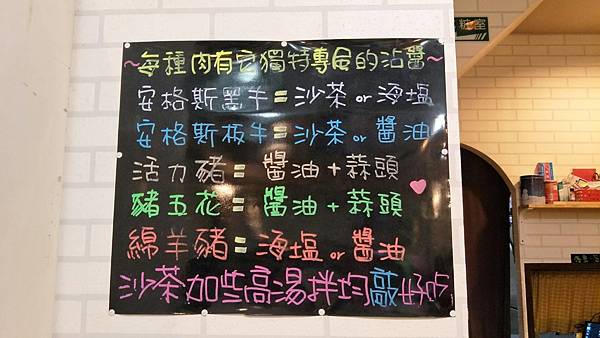 ～每種肉有它獨特專屬的沾醬～
安格斯黑牛=沙茶or海塩
安格斯板牛=沙茶or醬油
活力豬=醬油+蒜頭
豬五花=醬油+蒜頭
綿羊豬=海塩or醬油
沙茶加些高湯拌均敲好吃